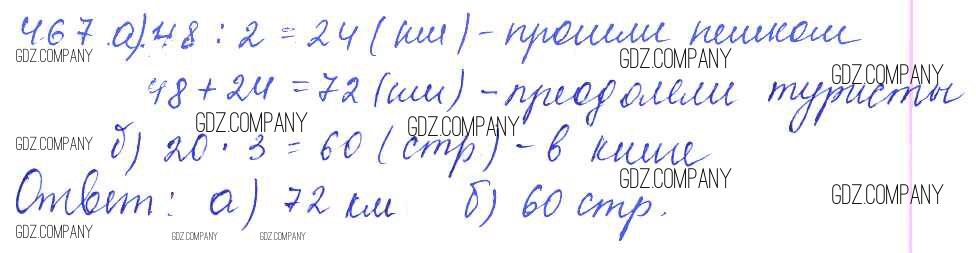 467 а) 48 : 2 = 24 (км) - прошли пешком
GDZ.COMPANY GDZ.COMPANY GDZ.COMPANY
48 + 24 = 72 (км) - преодолели туристы
GDZ.COMPANY GDZ.COMPANY GDZ.COMPANY
б) 20 · 3 = 60 (стр) - в книге
GDZ.COMPANY GDZ.COMPANY
Ответ: а) 72 км б) 60 стр.
GDZ.COMPANY GDZ.COMPANY GDZ.COMPANY